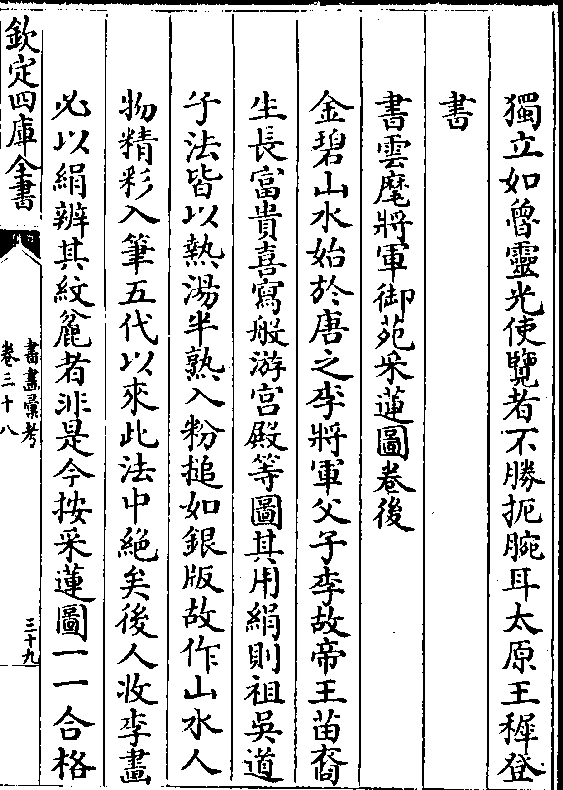 獨立如魯靈光使覽者不勝扼腕耳太原王穉登
書
書雲麾將軍御苑采蓮圖卷後
金碧山水始於唐之李將軍父子李故帝王苗裔
生長富貴喜寫般游宫殿等圖其用絹則祖吳道
子法皆以熱湯半熟入粉搥如銀版故作山水人
物精彩入筆五代以來此法中絕矣後人收李畫
必以絹辨其紋麄者非是今按采蓮圖一一合格
欽定四庫全書
書畫彙考
卷三十八
三十九